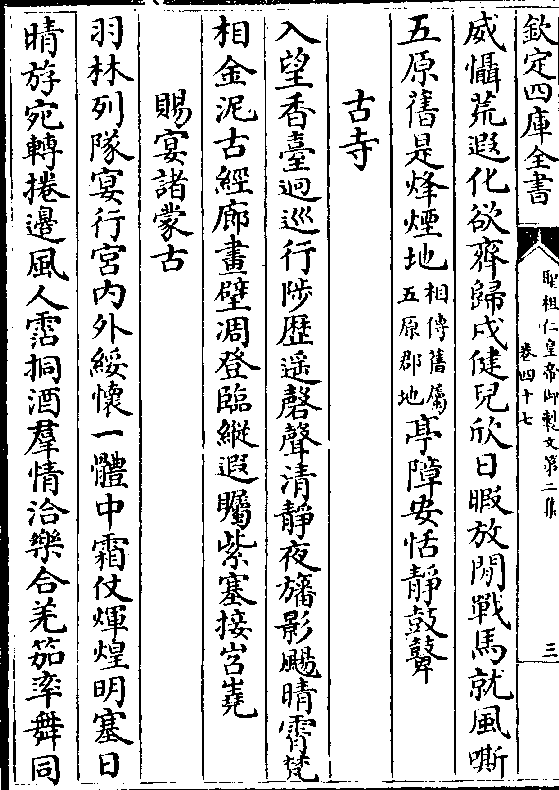 欽定四庫全書
聖祖仁皇帝御製文第二集
卷四十七
三
威懾荒遐化欲齊歸戍健兒欣日暇放閒戰馬就風嘶
五原舊是烽煙地相傳舊屬五原郡地亭障安恬靜鼓鼙
古寺
入望香臺迥巡行陟歷遥磬聲清靜夜旛影颺晴霄梵
相金泥古經廊畫壁凋登臨縱遐矚紫塞接岧嶤
賜宴諸蒙古
羽林列隊宴行宮内外綏懷一體中霜仗輝煌明塞日
晴斿宛轉捲邊風人霑挏酒羣情洽樂合羌笳率舞同